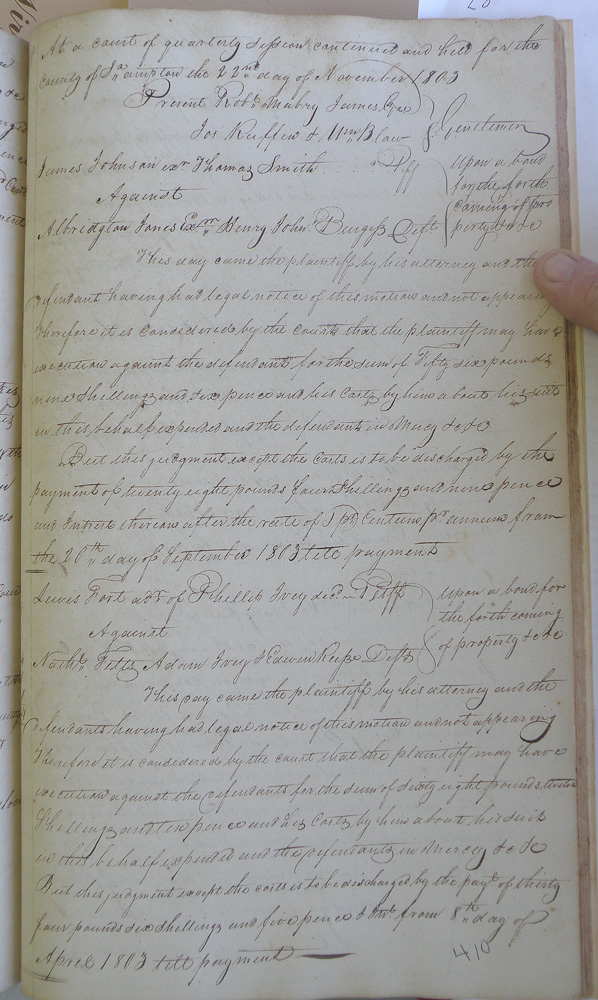 At a court of quarterly Session continued and held for the
County of Sx ampton the 22nd day of November 1803
Present Robt. Mabry James Gee
Jos Ruffin & Wm Blow } Gentlemen
James Johnson exr Thomas Smith Plff } upon a bond
Against for the forth
Albridgton Jones Exr Henry John Burgess Deft coming of pro
perty &c &c
This day came the plaintiff by his attorney and the
defendant having had legal notice of this motion and not appearing
Therefore it is considered by the court that the plaintiff may have
execution against the defendants for the sum of Fifty six pounds
nine shillings and six pence and his Costs by him about his suit
in this behalf expended and the defendants in Mercy &c &c
But this judgment except the Costs is to be discharged by the
payment of twenty eight pounds four shillings and nine pence
and Interest thereon after the rate of 5 pr Centum pr annum from
the 20th day of September 1803 till payment
Lewis Fort adr of Phillip Ivey decd Plff } upon a bond for
Against the forth coming
Nathl. Felts Adam Ivey & Edwin Keese Defts of property &c &c
This day came the plaintiff by his attorney and the
defendants having had legal notice of this motion and not appearing
Therefore it is considered by the court that the plaintiff may have
execution against the defendants for the sum of sixty eight pounds twelve
Shillings and ten pence and his Costs by him about his suit
in this behalf expended and the defendants in mercy &c &c
But this judgment except the costs is to be discharged by the payt. of thirty
four pounds six shillings and five pence & Int. from 8th day of
April 1803 till payment
410